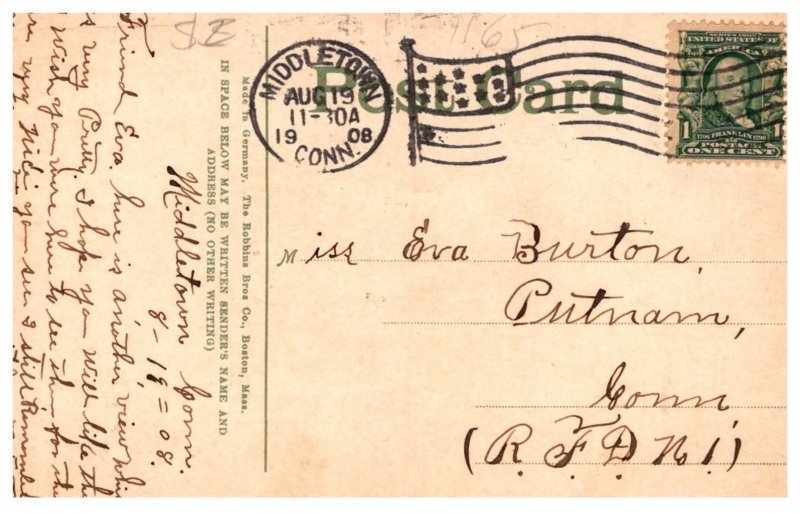 Middletown Conn.
8-18=08.
Friend Eva. here is another view which
is very Pretty, I hope you will like the
I wish you were here to see them for the
are very nice you see I still Remember
Made in Germany. The Robbins Bros Co., Boston, Mass.
IN SPACE BELOW MAY BE WRITTEN SENDER'S NAME AND
ADDRESS (NO OTHER WRITING)
9165
MIDDLETOWN
AUG 19
11-30A
1908
CONN.
Post Card
SERIES 1902
UNITED STATES OF
AMERICA
1706 FRANKLIN 1790
POSTAGE
1 ONE CENT 1
Miss Eva Burton,
Putnam,
Conn
(R. F. D. N. 1)